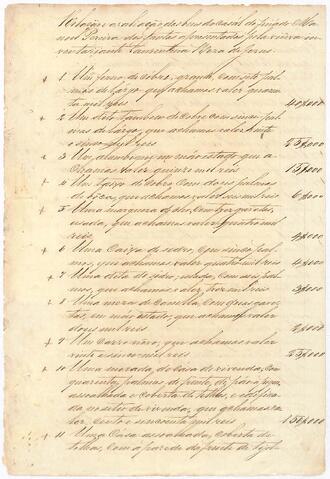 Relação e avaliação dos bens do casal do finado Ma
noel Pereira dos Santos apresentados pela viuva in
ventariante Laurentina Roza de Jesus.
+ 1 Um forno de cobre, grande, com oito pal
mos de largo que achamos valer quaren
ta mil reis 40$000
+ 2 Um dito tambem de cobre com cinco pal
mos de largo, que achamos valer vinte
e cinco mil reis 25$000
+ 3 Um alambique em máo estado que a
chamos valer quinze mil reis 15$000
+ 4 Um de cobre com dous palmos
de boca, que achamos valer seis mil reis 6$000
+ 5 Uma com tres
uzada, que achamos valer quatro mil
reis 4$000
+ 6 Uma Caixa de cedro, com cinco pal
mos, que achamos valer quatro mil reis 4$000
+ 7 Uma dita de cedro, uzada, com seis pal
mos, que achamos valer tres mil reis 3$000
+ 8 Uma meza de Canella, com duas gave
tas, em máo estado, que achamos valer
dous mil reis 2$000
+ 9 Um Carro novo, que achamos valer
vinte e cinco mil reis 25$000
+ 10 Uma morada de Casa de vivenda, com
quarenta palmos de frente, de páo a pique
assoalhada e coberta de telhas, e edifica
da no sitio de vivenda, que achamos va
ler, cento e cincoenta mil reis 150$000
+ 11 Uma Casa assoalhada, coberta de
telhas, com a parede da frente de tijol